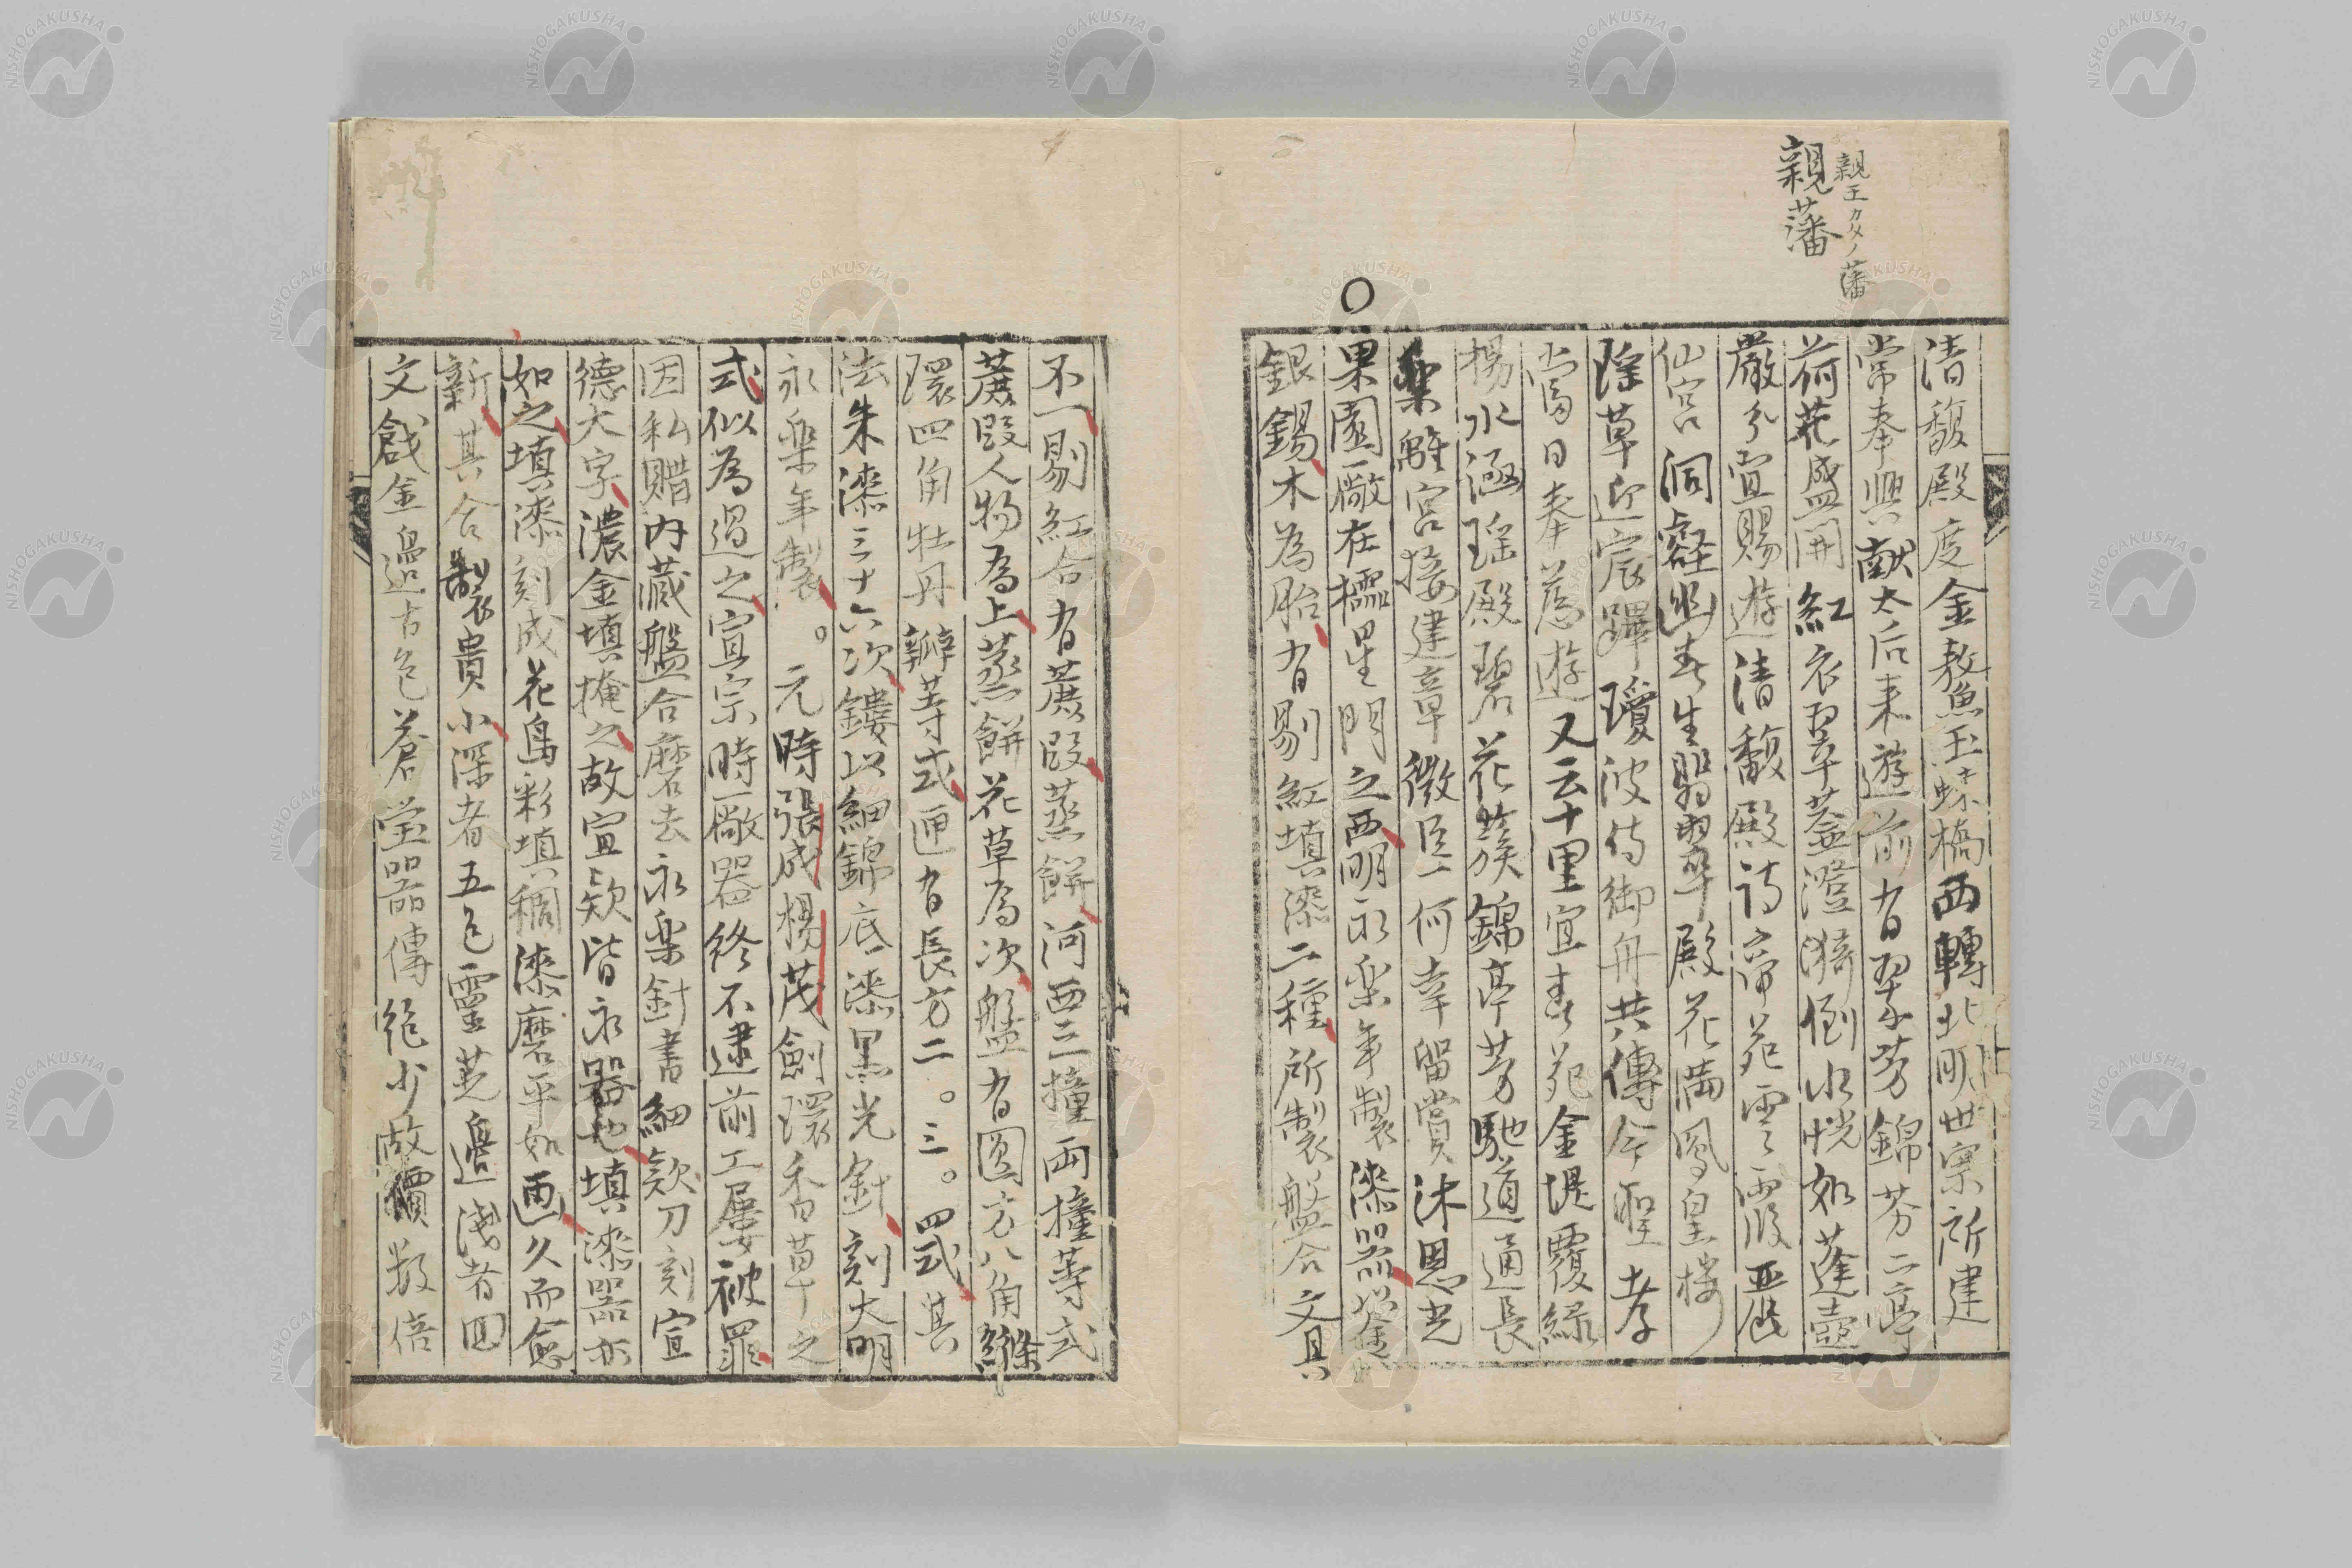 親王カタノ藩
親藩
清馥殿度金鰲魚玉蝀橋西轉北明世宗所建
常奉興献太后来遊前有翠芳錦芬二亭
荷花盛開紅衣翠蓋澄漪倒水恍如蓬壺
嚴分宜賜遊清馥殿詩帝苑雲霞
仙宮洞壑幽春生翡翠殿花満鳳皇楼
除草迎宸蹕瓊波侍御舟共傳今聖孝
當日奉慈遊又云十里宜春苑金堤覆緑
楊水涵瑶殿碧花簇錦亭芳馳道通長
樂離宮接建章微臣何幸留賞沐恩光
○果園廠在櫺星門之西明永楽年製漆器
銀錫木為胎有剔紅填漆二種所製盤合文具
不一剔紅合有蔗段蒸餅河西三撞兩撞等式
蔗段人物為上蒸餅花草為次盤有圓方八角絛
環四角牡丹瓣等式匣有長方二。三。四式其
法朱漆三十六次鏤以細錦底漆黒光針刻大明
永楽年製。元時張成楊茂劍環香草之
式似為過之宣宗時廠器終不逮前工屡被罪
因私購内蔵盤合磨去永楽針書細款刀刻宣
徳大字濃金填掩之故宣欵皆永器也填漆器亦
如之填漆刻成花鳥彩填稠漆磨平如画久而愈
新其合製貴小深者五色靈芝邊浅者回
文戧金邊古色蒼瑩器傳絶少故價数倍
NISHOGAKUSHA